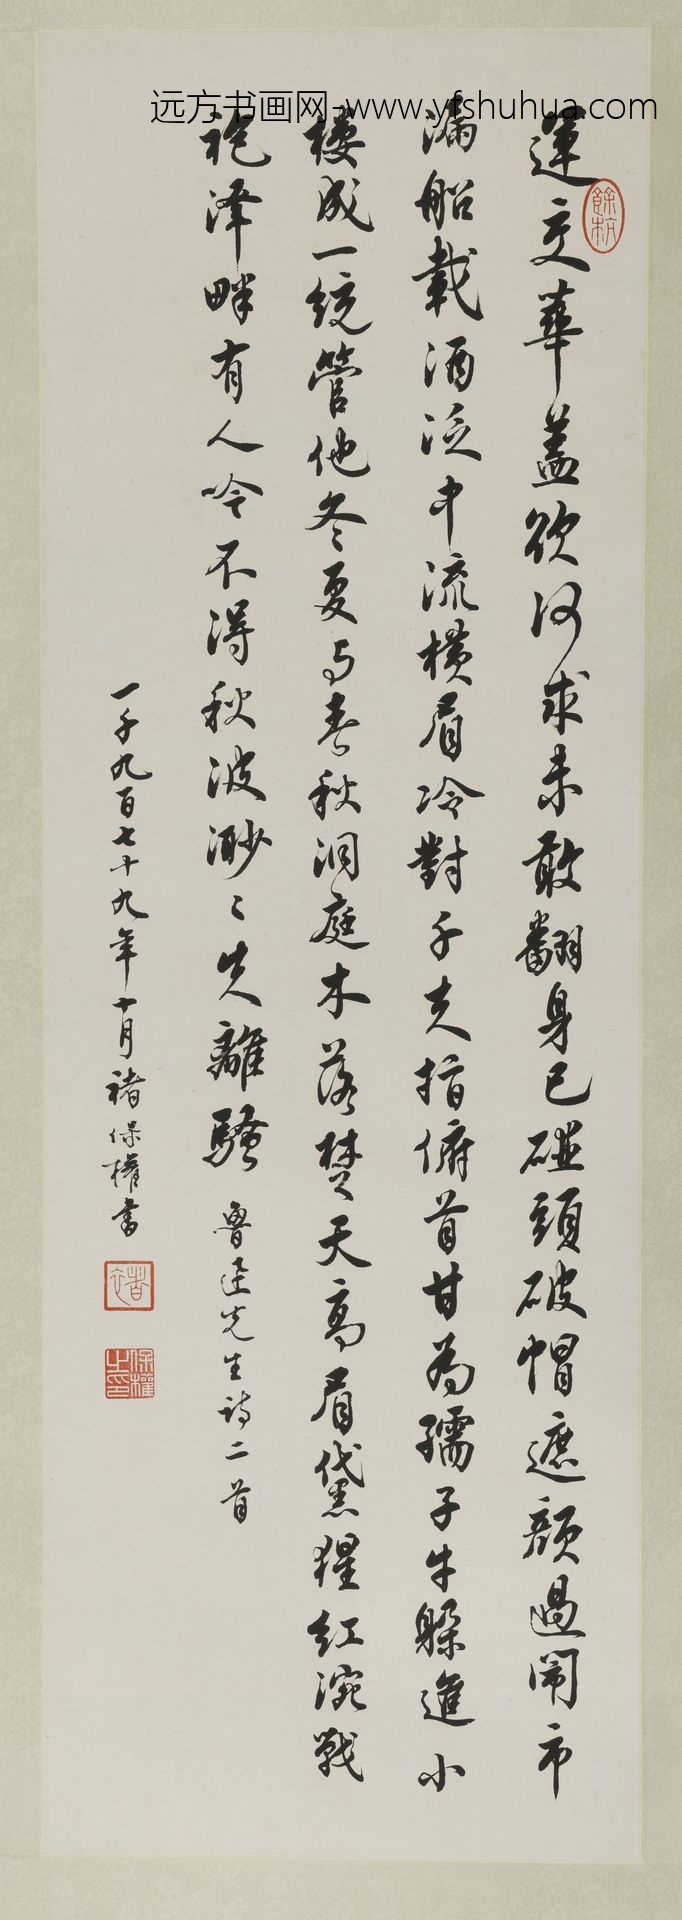 远方书画网-www.yfshuhua.com
運交華蓋欲何求未敢翻身已碰頭破帽遮顏過鬧市
漏船載酒泛中流橫眉冷對千夫指俯首甘為孺子牛躲進小
樓成一統管他冬夏与春秋洞庭木落楚天高眉黛猩紅涴戰
袍澤畔有人吟不得秋波渺〻失離騷魯迅先生詩二首
一千九百七十九年十月褚保權書
餘杭
褚
保權之印